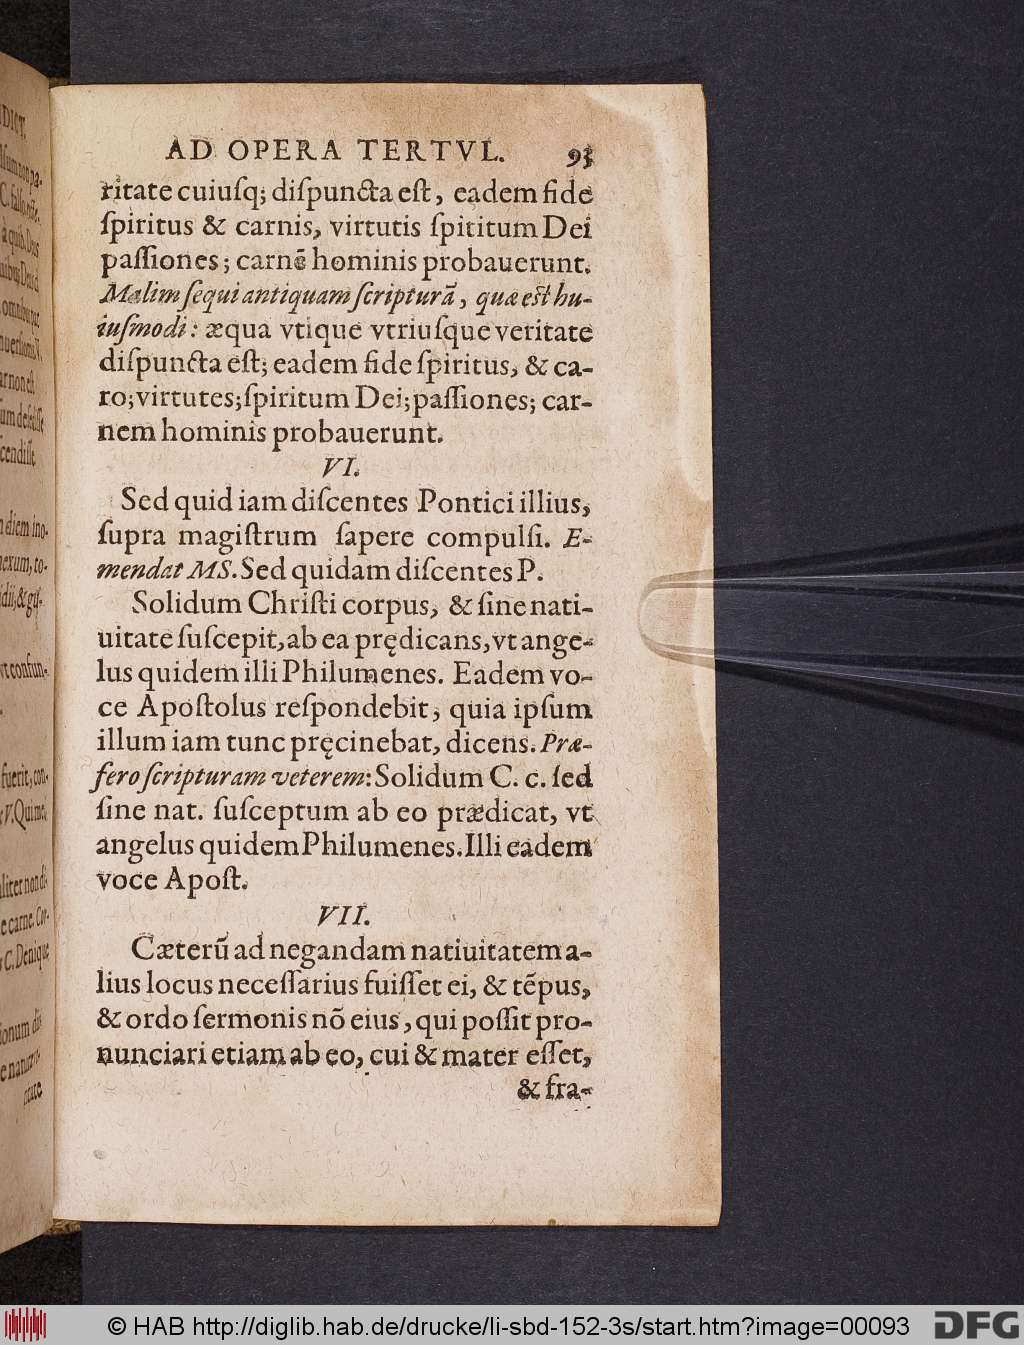 AD OPERA TERTVL. 93
ritate cuiuſq; diſpuncta eſt, eadem fide
ſpiritus & carnis, virtutis ſpititum Dei
paſſiones; carnē hominis probauerunt.
Malim ſequi antiquam ſcripturā, quæ eſt hu-
iuſmodi: æqua vtique vtriuſque veritate
diſpuncta eſt; eadem fide ſpiritus, & ca-
ro; virtutes; ſpiritum Dei; paſſiones; car-
nem hominis probauerunt.
VI.
Sed quid iam diſcentes Pontici illius,
ſupra magiſtrum ſapere compulſi. E-
mendat MS. Sed quidam diſcentes P.
Solidum Chriſti corpus, & ſine nati-
uitate ſuſcepit, ab ea prędicans, vt ange-
lus quidem illi Philumenes. Eadem vo-
ce Apoſtolus reſpondebit, quia ipſum
illum iam tunc pręcinebat, dicens. Præ-
fero ſcripturam veterem: Solidum C. c. ſed
ſine nat. ſuſceptum ab eo prædicat, vt
angelus quidem Philumenes. Illi eadem
voce Apoſt.
VII.
Cæterū ad negandam natiuitatem a-
lius locus neceſſarius fuiſſet ei, & tēpus,
& ordo ſermonis nō eius, qui poſſit pro-
nunciari etiam ab eo, cui & mater eſſet,
& fra-
© HAB http://diglib.hab.de/drucke/li-sbd-152-3s/start.htm?image=00093
DFG